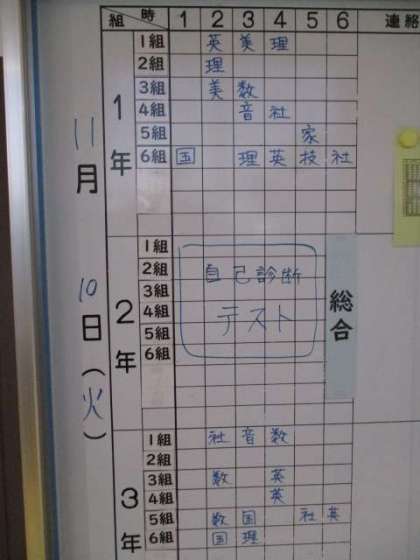 組 時 1 2 3 4 5 6 連絡
11月10日(火)
1年
1組 英 美 理
2組 理
3組 美 数
4組 音 社
5組 家
6組 国 理 英 技 社
2年
1組
2組 自己診断
3組
4組 テスト
5組
6組
総合
3年
1組 社 音 数
2組
3組 数 英
4組 英
5組 数 国 社 英
6組 国 理